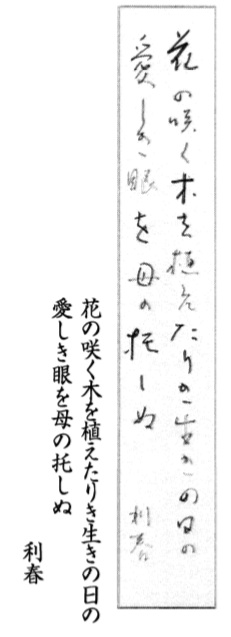 花の咲く木を植えたりき生きの日の
愛しき眼を母の托しぬ
利春
花の咲く木を植えたりき生きの日の
愛しき眼を母の托しぬ
利春